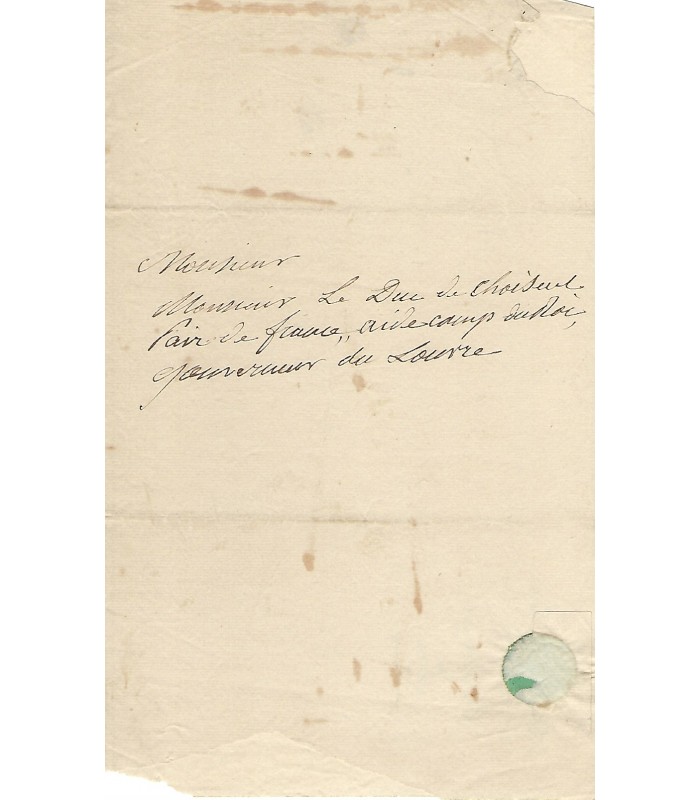 Monsieur
Monsieur Le Duc de Choiseul
Pair de france, aide camp du Roi,
gouverneur du Louvre